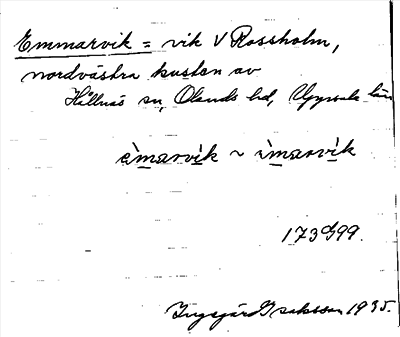 Emmarvik = vik V Rossholm,
nordvästra kusten av
Hållnäs sn, Olands hd, Uppsala län
èmarvik ~ ìmarvik
173G99.
Ingegärd Isaksson 1935.